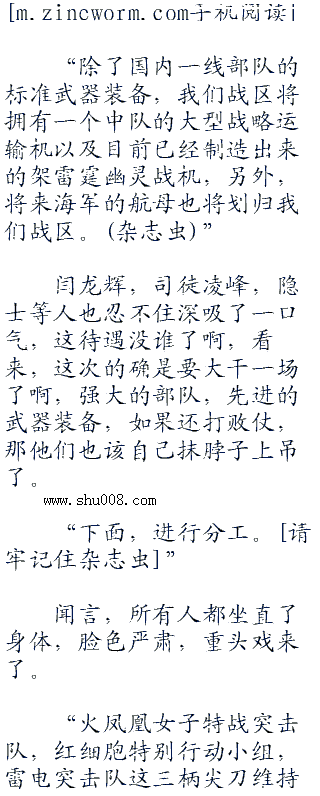 [m.zincworm.com手机阅读i
“除了国内一线部队的
标准武器装备，我们战区将
拥有一个中队的大型战略运
输机以及目前已经制造出来
的架雷霆幽灵战机，另外，
将来海军的航母也将划归我
们战区。(杂志虫)”
闫龙辉，司徒凌峰，隐
士等人也忍不住深吸了一口
气，这待遇没谁了啊，看
来，这次的确是要大干一场
了啊，强大的部队，先进的
武器装备，如果还打败仗，
那他们也该自己抹脖子上吊
了。
www.shu008.com
“下面，进行分工。[请
牢记住杂志虫]”
闻言，所有人都坐直了
身体，脸色严肃，重头戏来
了。
“火凤凰女子特战突击
队，红细胞特别行动小组，
雷电突击队这三柄尖刀维持